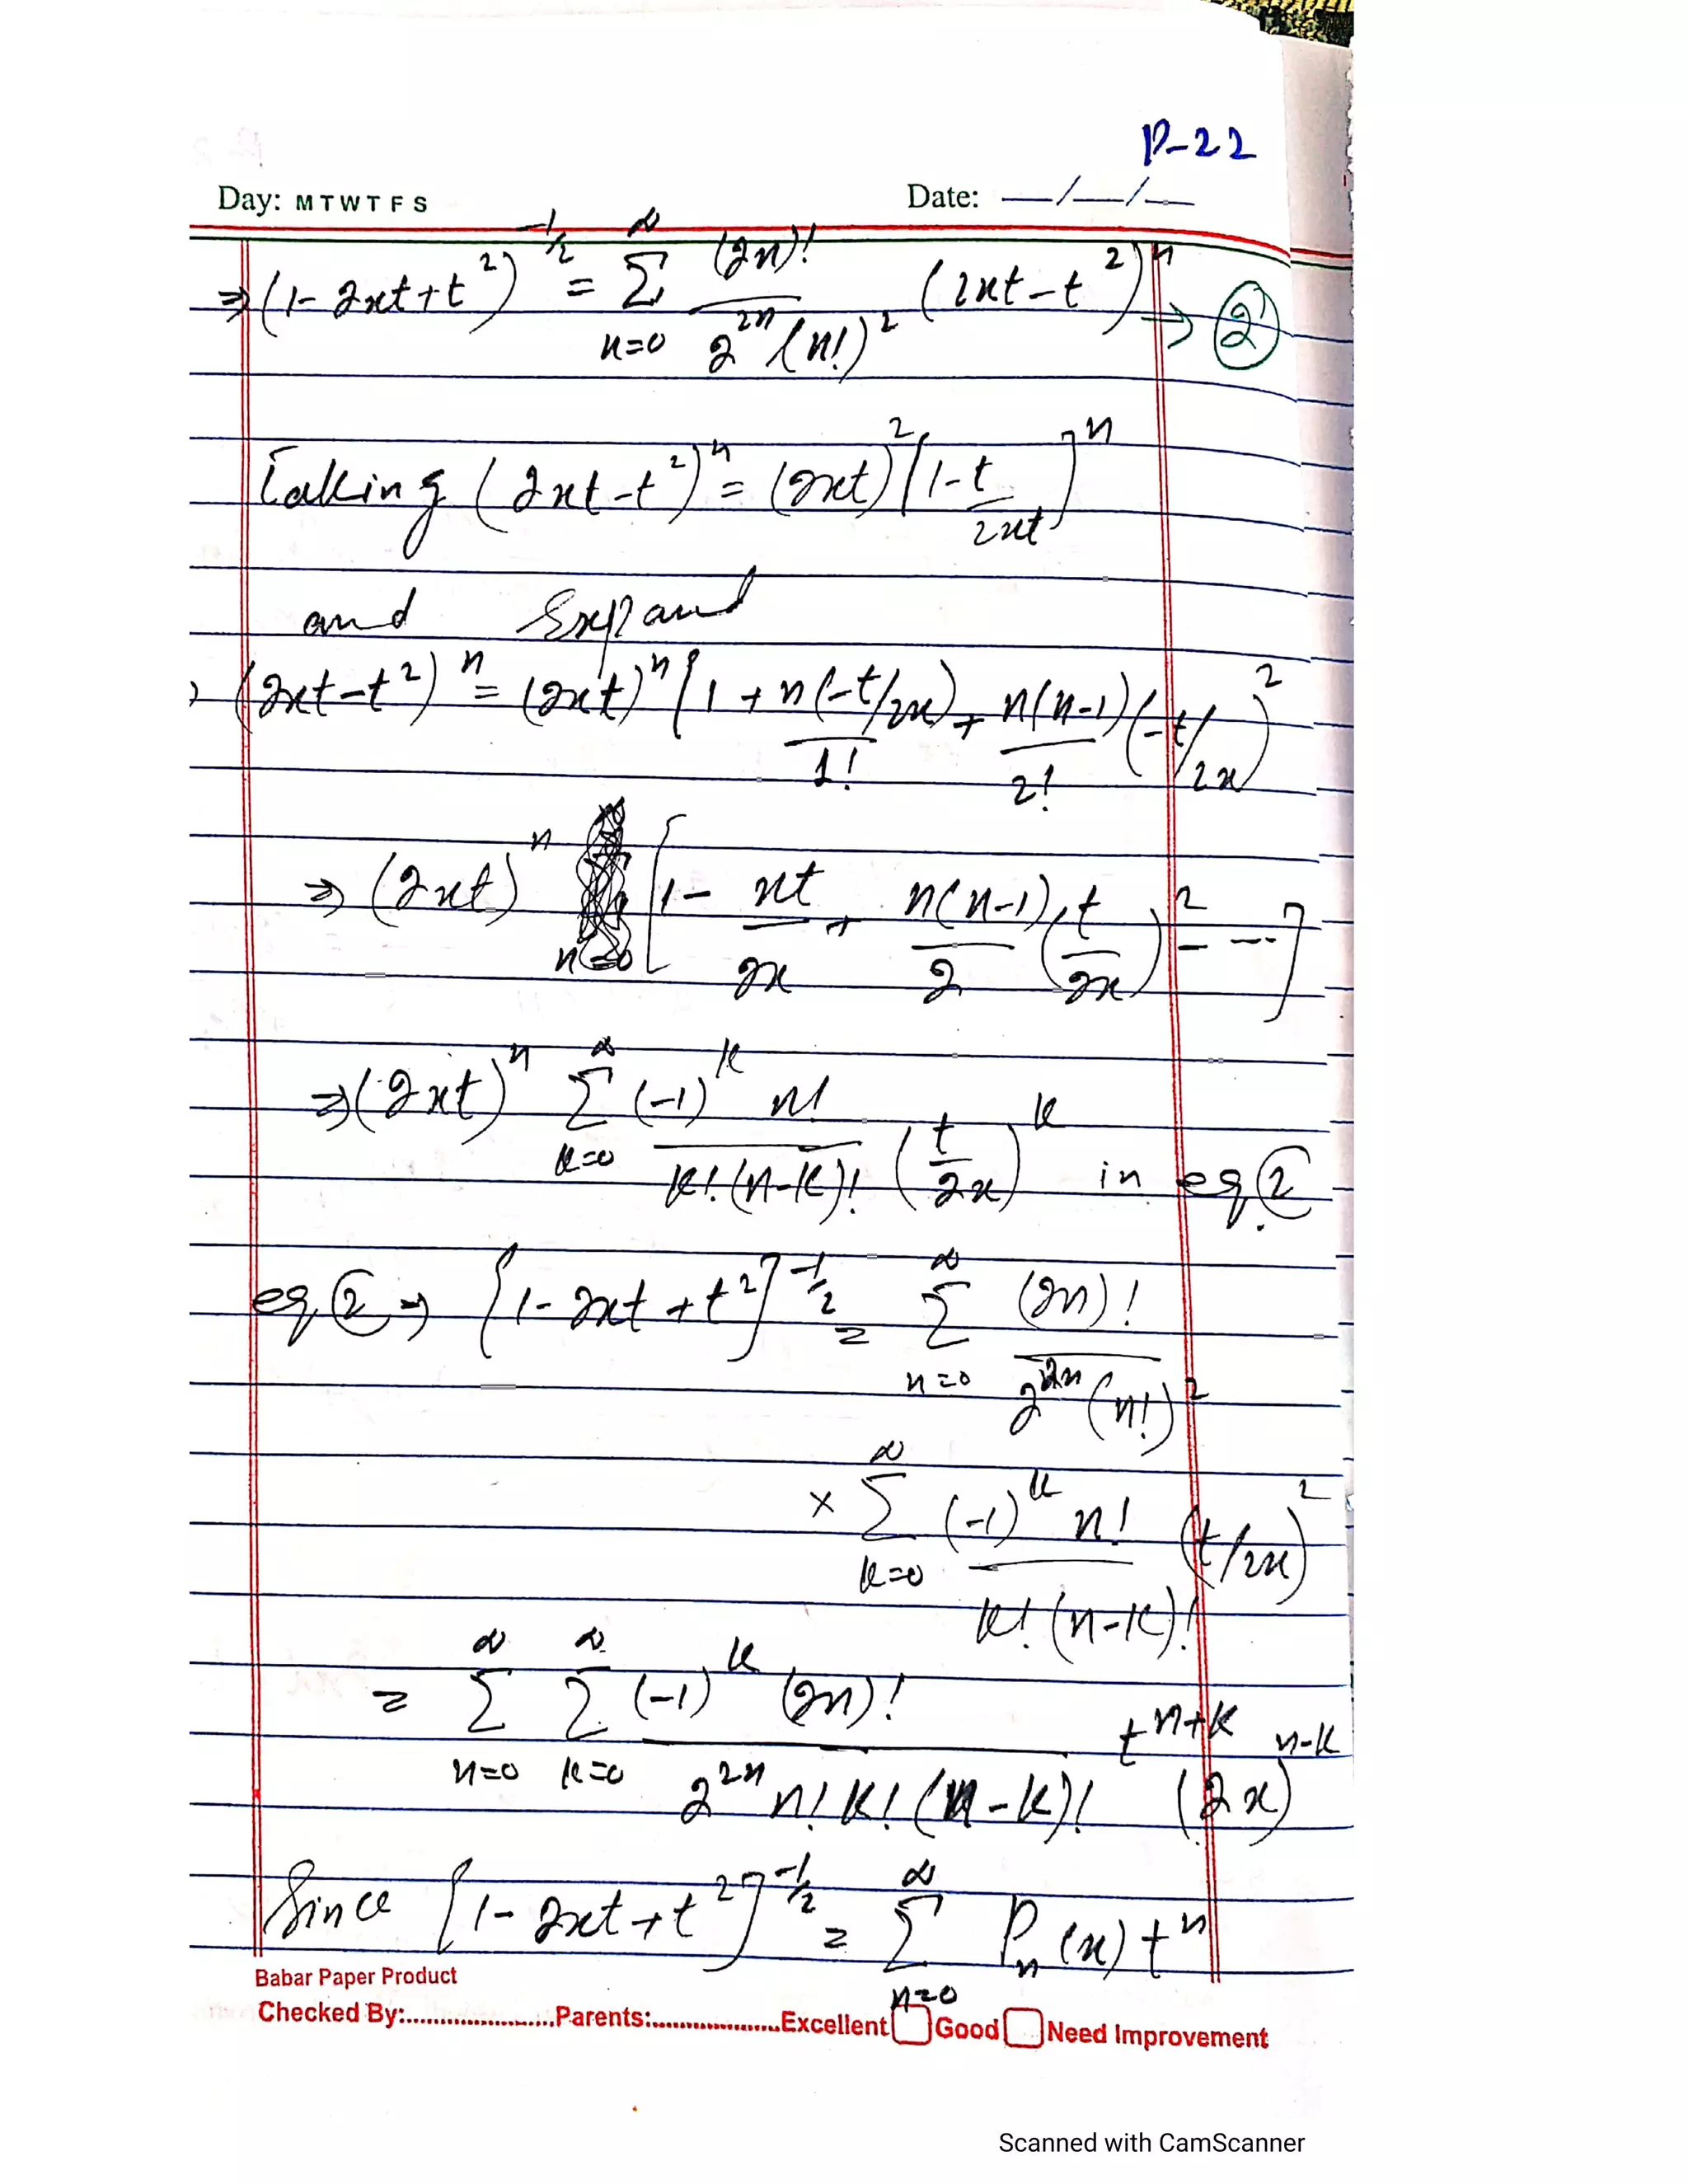 P-22
Day: M T W T F S Date: __/__/__
⇒ (1-2xt+t²)^{-1/2} = ∑_{n=0}^{∞} (2n)!/(2^{2n}(n!)²) (2xt-t²)^n → ②
Taking (2xt-t²)^n = (2xt)² [1-t/2xt]^n
and Expand
(2xt-t²)^n = (2xt)^n [1 + n(-t/2x)/1! + n(n-1)/2! (-t/2x)²
⇒ (2xt)^n [1 - nt/2x + n(n-1)/2 (t/2x)² - ---]
⇒ (2xt)^n ∑_{k=0}^{∞} (-1)^k n!/(k!(n-k)!) (t/2x)^k in eq ②
eq ② ⇒ [1-2xt+t²]^{-1/2} = ∑_{n=0}^{∞} (2n)!/(2^{2n}(n!)²)
× ∑_{k=0}^{∞} (-1)^k n!/(k!(n-k)!) (t/2x)²
= ∑_{n=0}^{∞} ∑_{k=0}^{∞} (-1)^k (2n)!/(2^{2n} n! k! (n-k)!) t^{n+k} (2x)^{n-k}
Since [1-2xt+t²]^{-1/2} = ∑_{n=0}^{∞} P_n(x) t^n
Babar Paper Product
Checked By:......................Parents:....................Excellent Good Need Improvement
Scanned with CamScanner